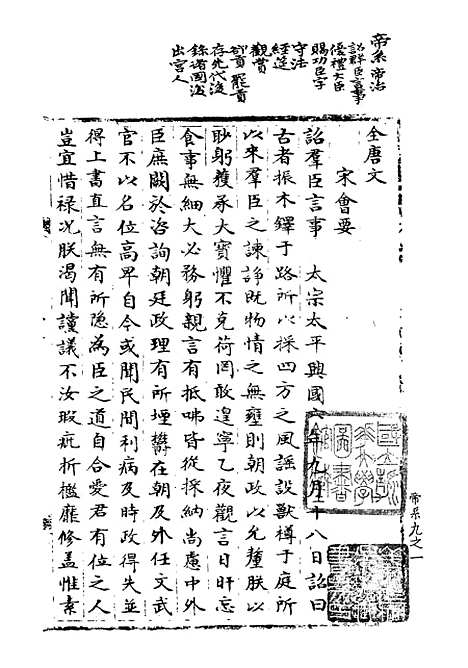 帝系 帝治
詔群臣言事
優禮大臣
賜功臣字
守法
經筵
觀賞
卻貢 罷貢
存先代後
錄諸國後
出宮人
全唐文
宋會要
詔羣臣言事 太宗太平興國六年九月十八日詔曰
古者振木鐸于路所以採四方之風謠設獸樽于庭所
以來羣臣之諫諍既物情之無壅則朝政以允釐朕以
眇躬獲承大寶懼不克荷罔敢遑寧乙夜觀言日旰忘
食事無細大必務躬親言有抵咈皆從採納尚慮中外
臣庶闕於咨詢朝廷政理有所堙鬱在朝及外任文武
官不以名位高卑自今或聞民間利病及時政得失並
得上書直言無有所隱為臣之道自合愛君有位之人
豈宜惜祿况朕渴聞讜議不汝瑕疵折檻靡修蓋惟素
帝系九之一